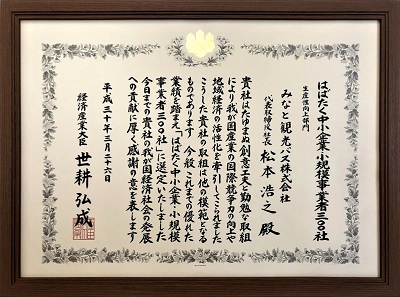 はばたく中小企業・小規模事業者三〇〇社
生産性向上部門
みなと観光バス株式会社
代表取締役社長 松本浩之殿
貴社はたゆまぬ創意工夫と勤勉な取組
により我が国産業の国際競争力の向上や
地域経済の活性化を牽引してこられました
こうした貴社の取組は他の模範となる
ものであります 今般 これまでの優れた
業績を踏まえ「はばたく中小企業・小規模
事業者三〇〇社」に選定いたしました
今日までの貴社の我が国経済社会の発展
への貢献に厚く感謝の意を表します
平成三十年三月二十六日
経済産業大臣 世耕弘成